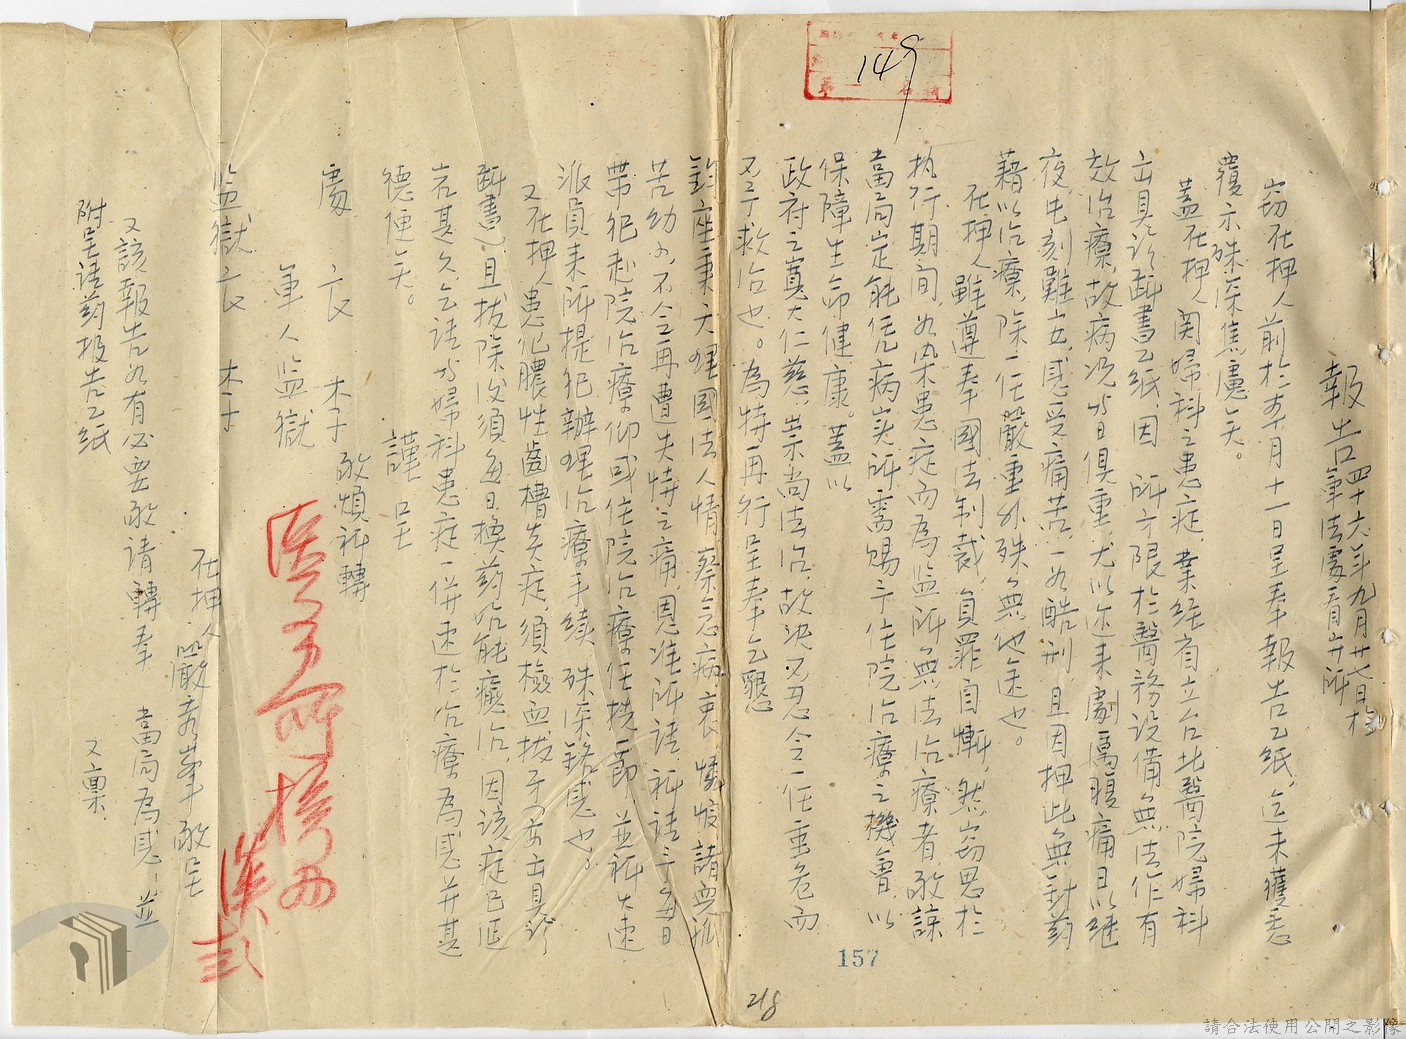 149
報告 四十六年九月廿七日於
軍法處看守所
竊在押人前於本月十一日呈奉報告乙紙,迄未獲悉
覆示殊深焦慮矣。
蓋在押人関婦科之患症,業經省立台北醫院婦科
出具診斷書乙紙,因 所方限於醫務設備無法作有
效治療,故病況與日俱重,尤以近來劇厲腹痛日以繼
夜,片刻難安,感受痛苦,一如酷刑,且因押此無針葯
藉以治療,除一任嚴重外殊無他途也。
在押人雖遵奉國法制裁,負罪自慚,然竊思於
执行期间,如染患症而為监所無法治療者,敢諒
當局定能凭病实所需賜予住院治療之機會,以
保障生命健康。蓋以
政府之寬大仁慈,崇尚法治,故決不忍令一任重危而
不予救治也。為特再行呈奉乞懇
鈞座秉天理國法人情,察念病衷,憐恤諸無
苦幼小,不令再遭失恃之痛,恩准所請,祈請予每日
帶犯赴院治療,仰或住院治療任擇一節,並祈火速
派員来所提犯辦理治療手續,殊深銘感也。
又在押人患化膿性齒槽炎症,須檢血拔牙(另出具診
斷書)且拔除後須每日換葯始能癒治,因該症已延
宕甚久,乞請與婦科患症一併速於治療為感,并甚
德便矣。
謹 呈
處 長 李 敬煩祈轉
軍人监獄
监獄長 李
在押人 嚴秀峯 敬呈
又該報告如有必要敢請轉奉 當局為感!並
附呈請葯报告乙紙
又稟.
157
218
請合法使用公開之影像